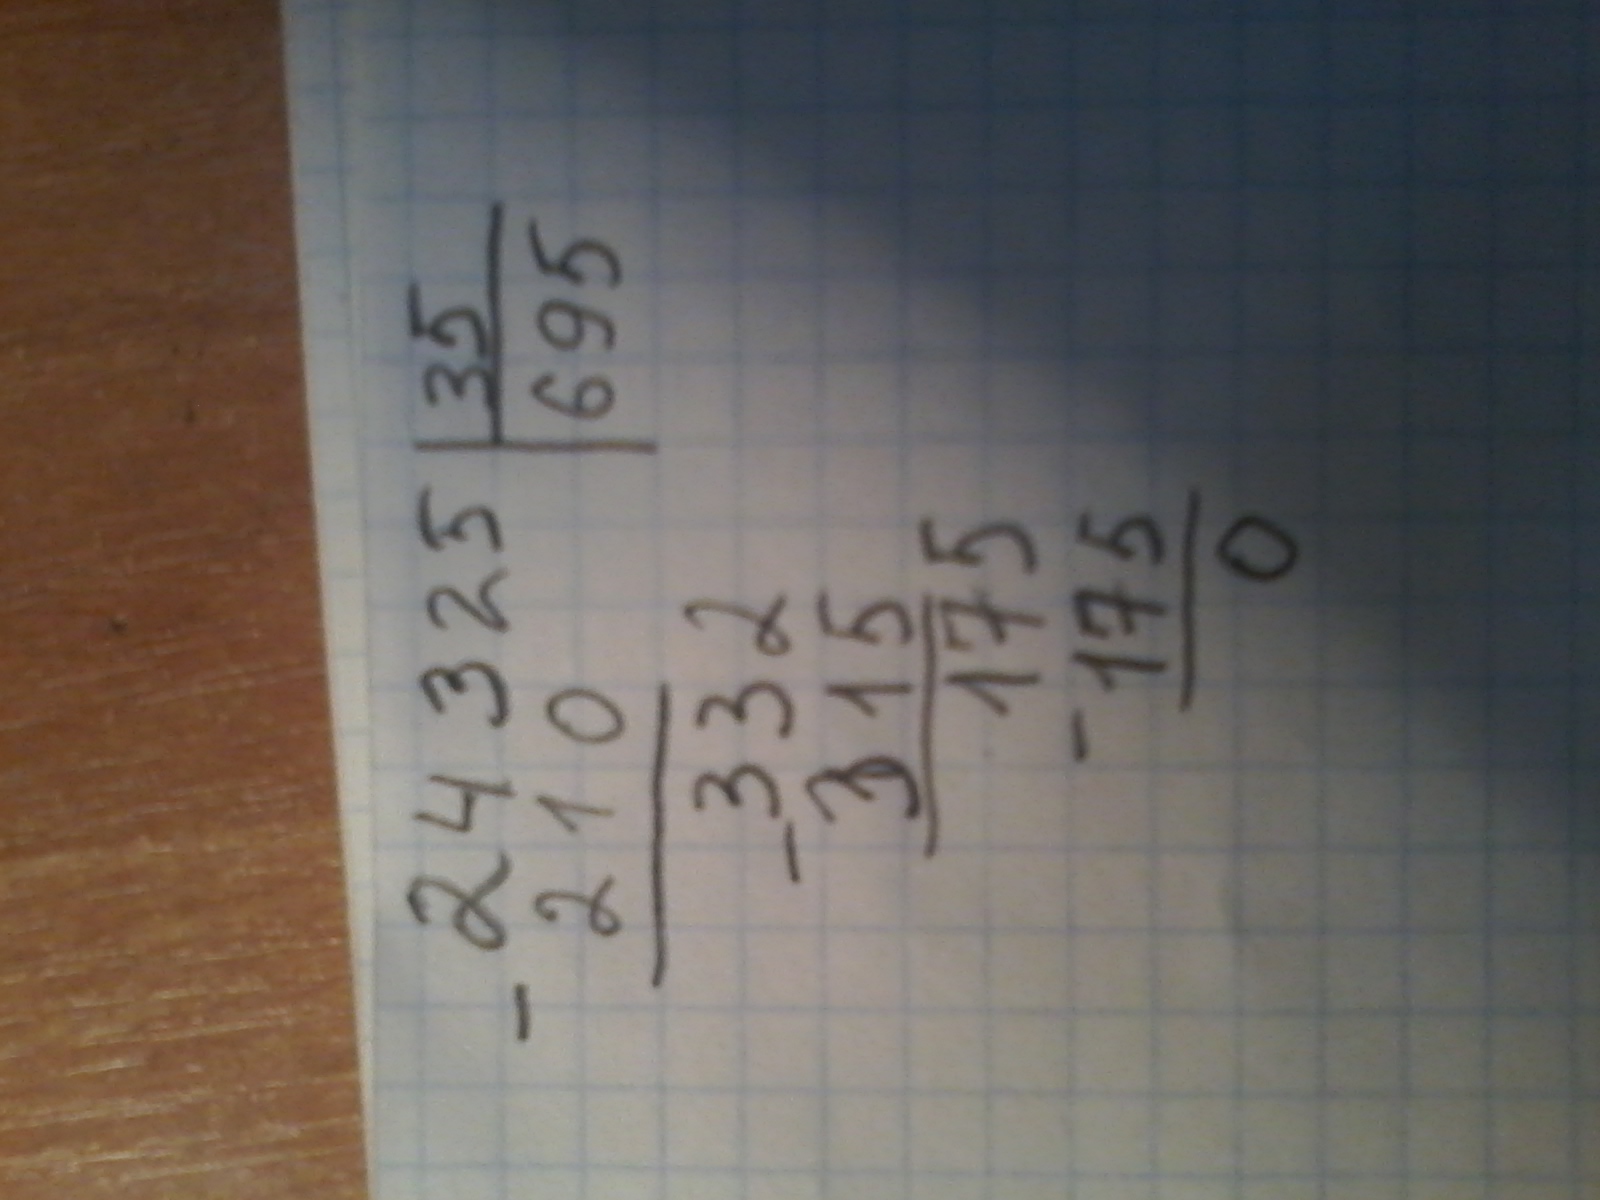 - 24325 | 35
210 | 695
- 332
315
175
- 175
0